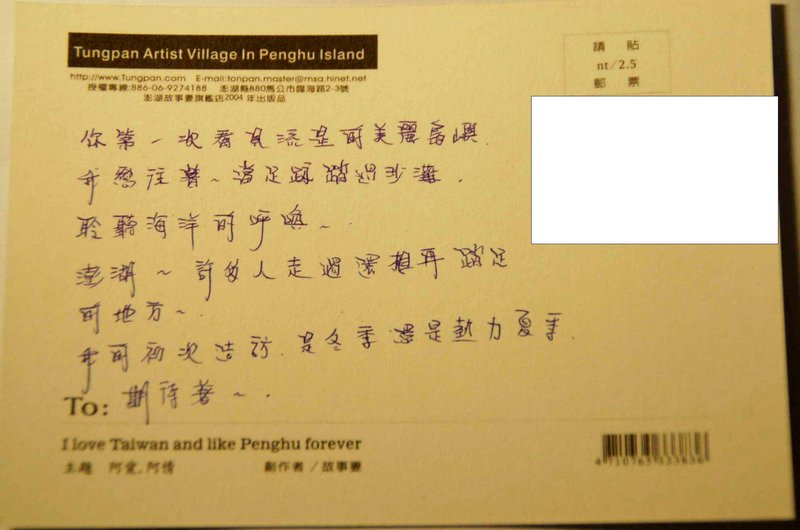 Tungpan Artist Village In Penghu Island
http://www.Tungpan.com E-mail:tonpan.master@msa.hinet.net
授權專線:886-06-9274188 澎湖縣880馬公市臨海路2-3號
澎湖故事妻旗艦店2004年出版品
請貼
nt/2.5
郵票
你第一次看見流星的美麗島嶼.
我嚮往著~當足跡踏過沙灘.
聆聽海洋的呼喚~.
澎湖~許多人走過還想再踏足
的地方~.
我的初次造訪.是冬季還是熱力夏季.
期待著~.
To:
I love Taiwan and like Penghu forever
主題 阿愛.阿情 創作者/故事妻
4 710765 333836